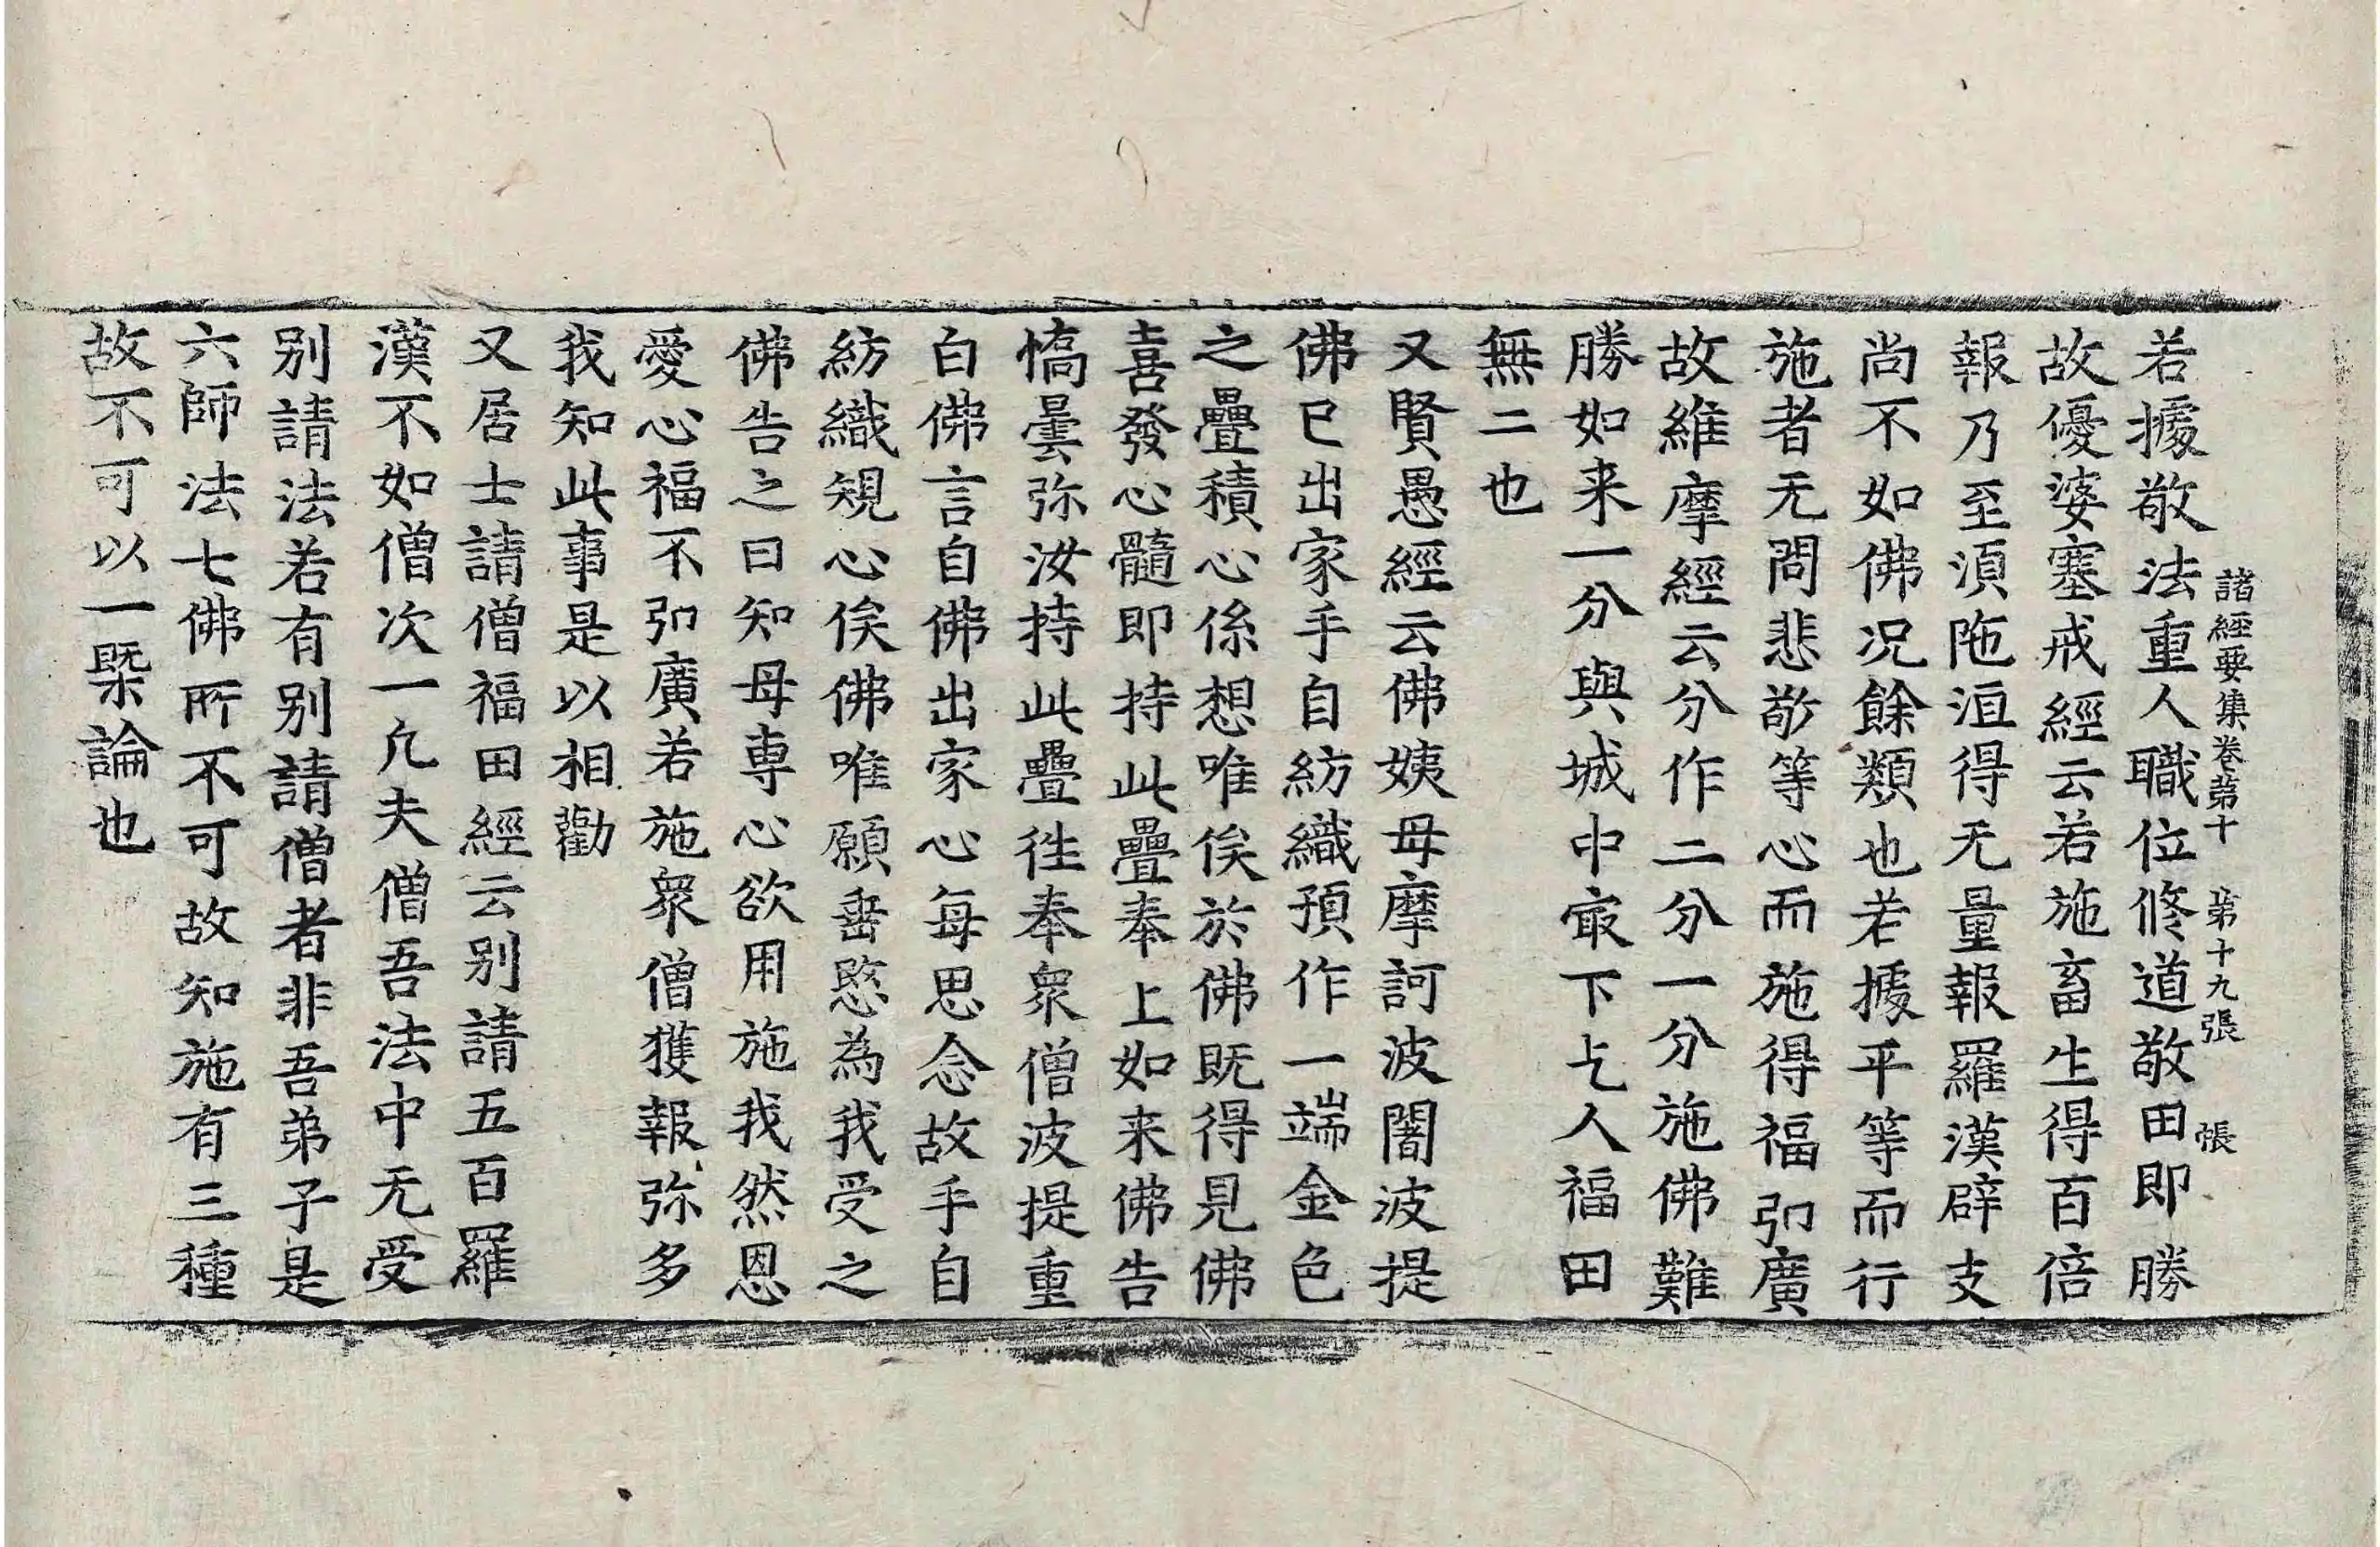 諸經要集卷苐十　苐十九張　帳
若據敬法重人職位修道敬田即勝
故優婆塞戒經云若施畜生得百倍
報乃至湏陁洹得无量報羅漢辟支
尚不如佛况餘類也若據平等而行
施者无問悲敬等心而施得福弘廣
故維摩經云分作二分一分施佛難
勝如来一分與城中冣下乞人福田
無二也
又賢愚經云佛姨母摩訶波闍波提
佛已出家手自紡織預作一端金色
之疊積心係想唯俟於佛既得見佛
喜發心髓即持此疊奉上如来佛告
憍曇弥汝持此疊徃奉衆僧波提重
白佛言自佛出家心每思念故手自
紡織規心俟佛唯願垂愍為我受之
佛告之曰知母専心欲用施我然恩
愛心福不弘廣若施衆僧獲報弥多
我知此事是以相勸
又居士請僧福田經云别請五百羅
漢不如僧次一凡夫僧吾法中无受
别請法若有别請僧者非吾弟子是
六師法七佛所不可故知施有三種
故不可以一槩論也